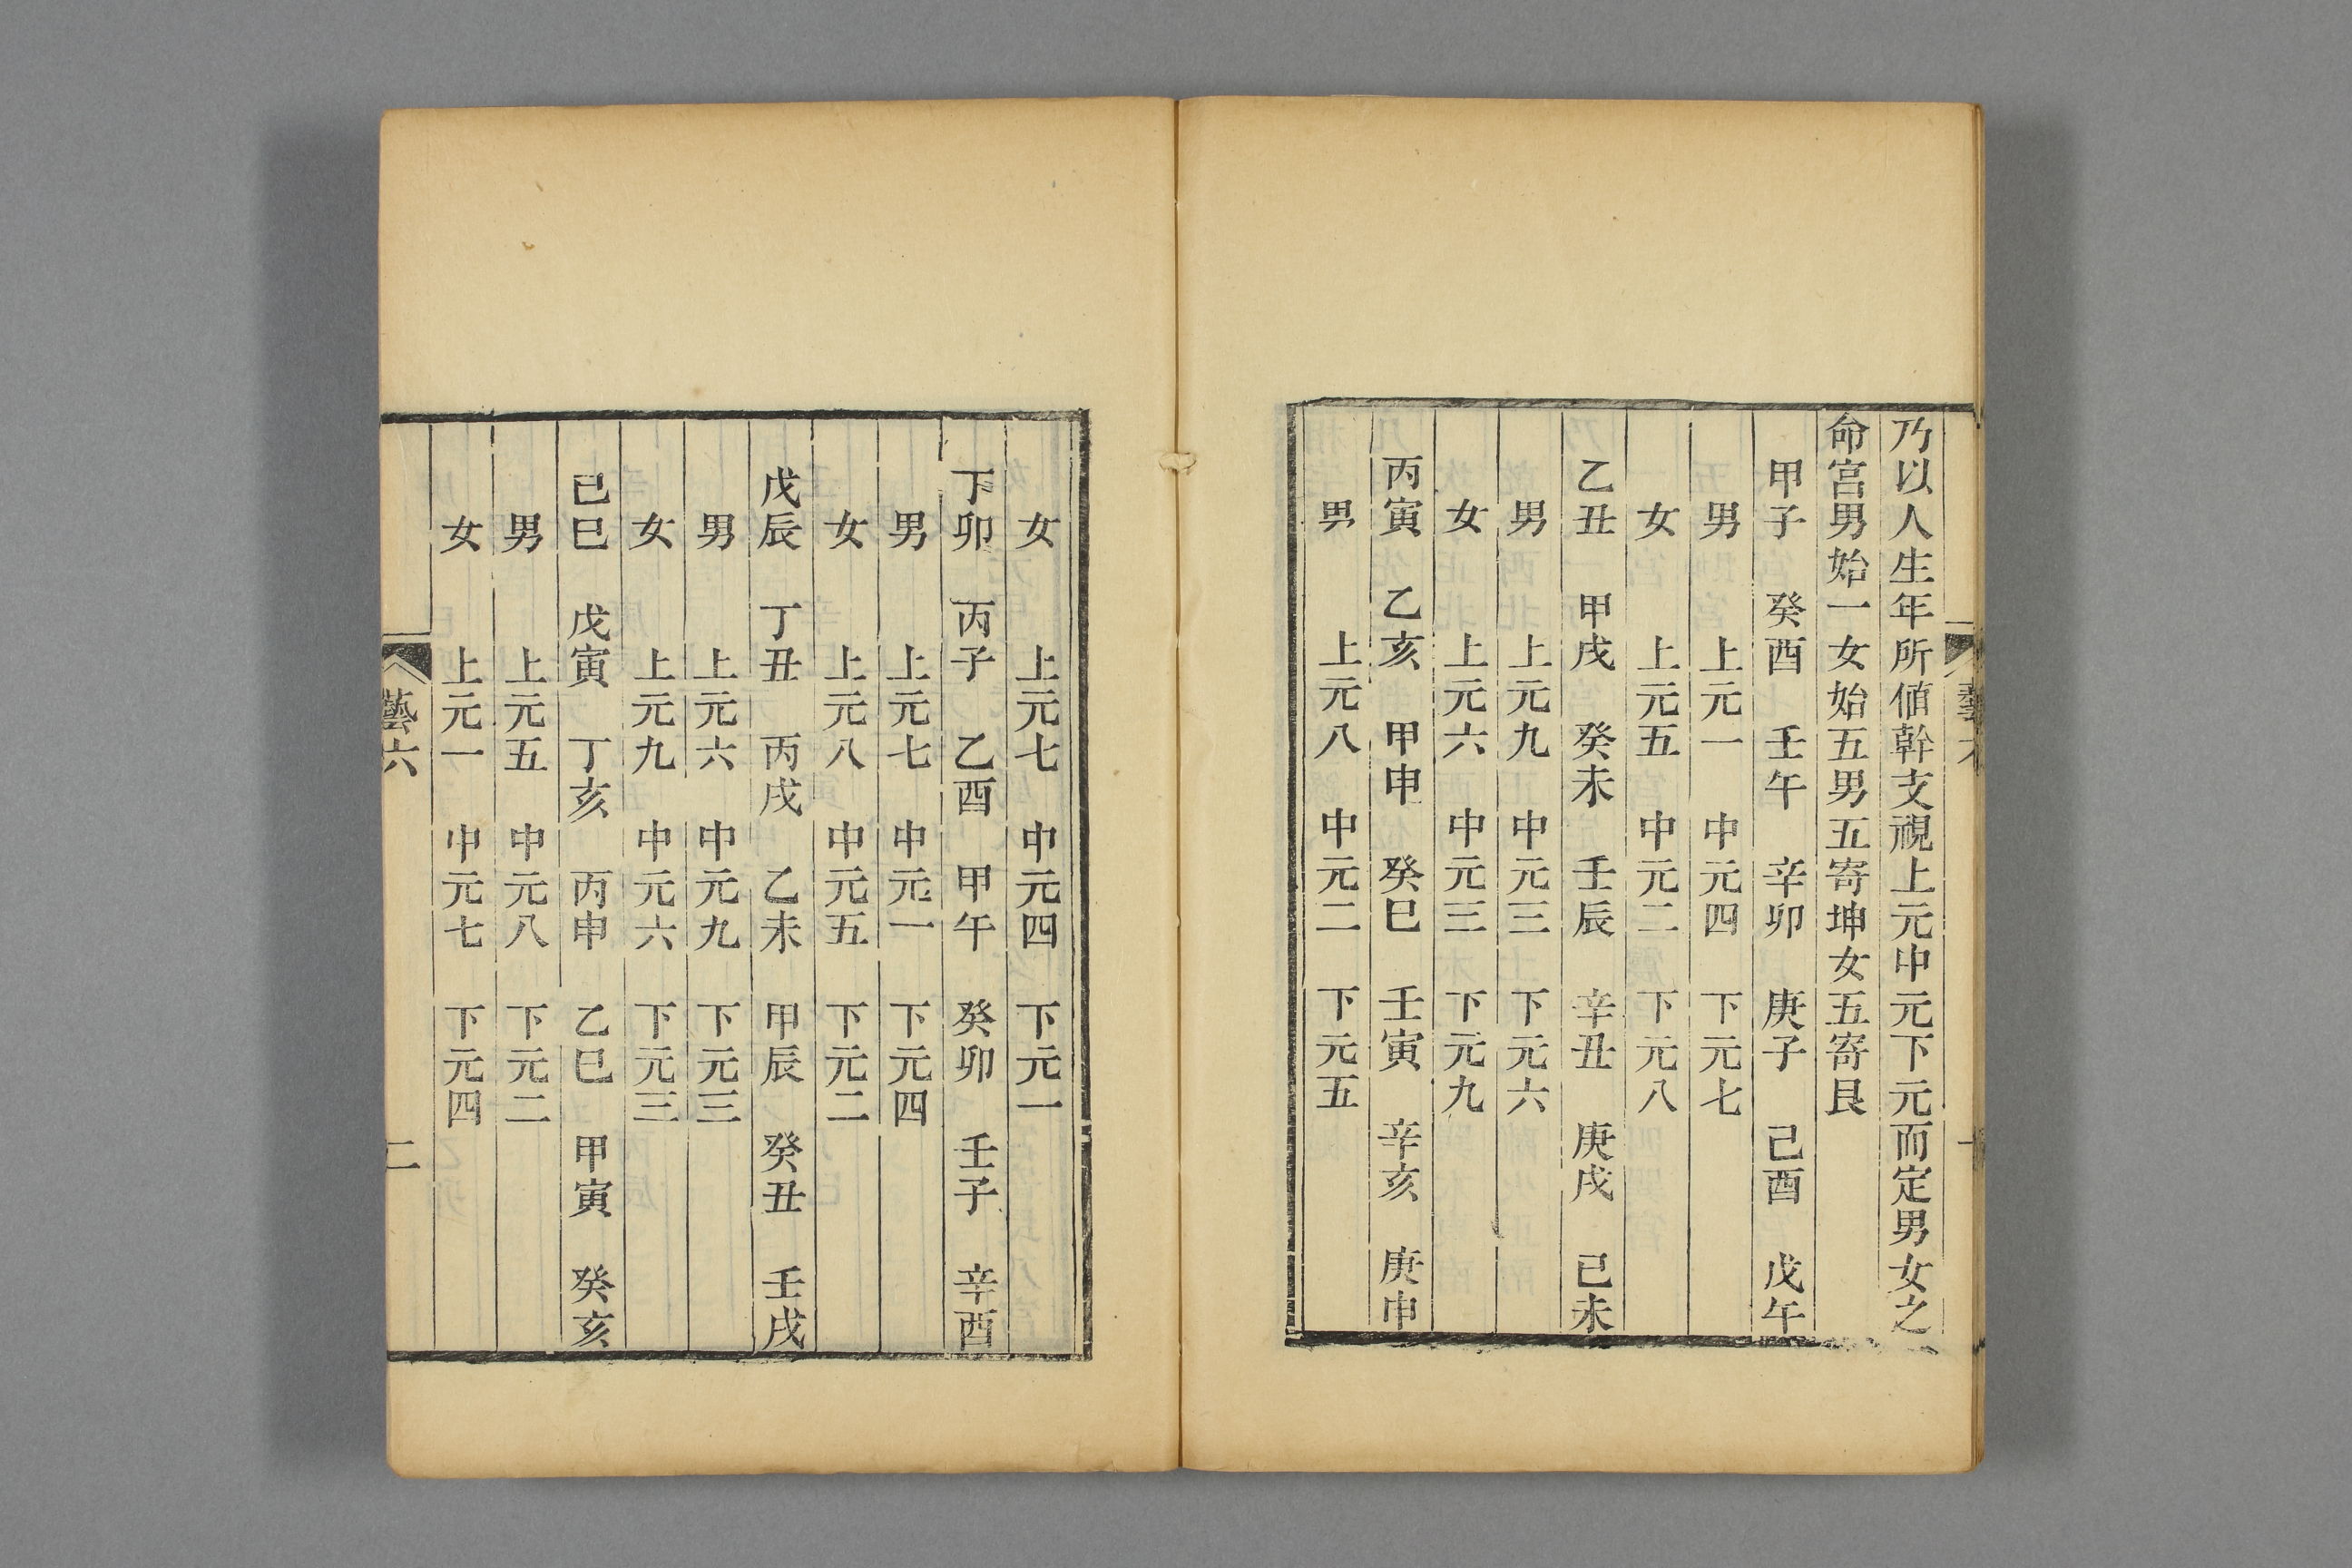 乃以人生年所値幹支視上元中元下元而定男女之
命宮男始一女始五男五寄坤女五寄艮
甲子 癸酉 壬午 辛卯 庚子 己酉 戊午
男 上元一 中元四 下元七
女 上元五 中元二 下元八
乙丑 甲戌 癸未 壬辰 辛丑 庚戌 己未
男 上元九 中元三 下元六
女 上元六 中元三 下元九
丙寅 乙亥 甲申 癸巳 壬寅 辛亥 庚申
男 上元八 中元二 下元五
女 上元七 中元四 下元一
丁卯 丙子 乙酉 甲午 癸卯 壬子 辛酉
男 上元七 中元一 下元四
女 上元八 中元五 下元二
戊辰 丁丑 丙戌 乙未 甲辰 癸丑 壬戌
男 上元六 中元九 下元三
女 上元九 中元六 下元三
己巳 戊寅 丁亥 丙申 乙巳 甲寅 癸亥
男 上元五 中元八 下元二
女 上元一 中元七 下元四
藝六 二